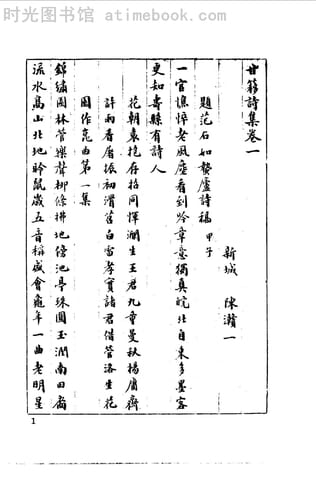 时光图书馆 atimebook.com
甘簃詩集卷一
新城 陳灨一
題范石如螯廬詩稿 甲子
一官憔悴老風塵看到吟章意獨真皖北自來多墨客
更知壽縣有詩人
花朝袁抱存招同惲瀾生王君九童曼秋楊庸齋
許雨香屠振初濮舊白曾孝實諸君借管洛生花
園作崑曲第一集
錦繡園林管樂聲柳條拂地傍池亭珠圓玉潤南田裔
流水高山北地聆鼠歲五音稱盛會龜年一曲老明星
1
时光图书馆 atimebook.com